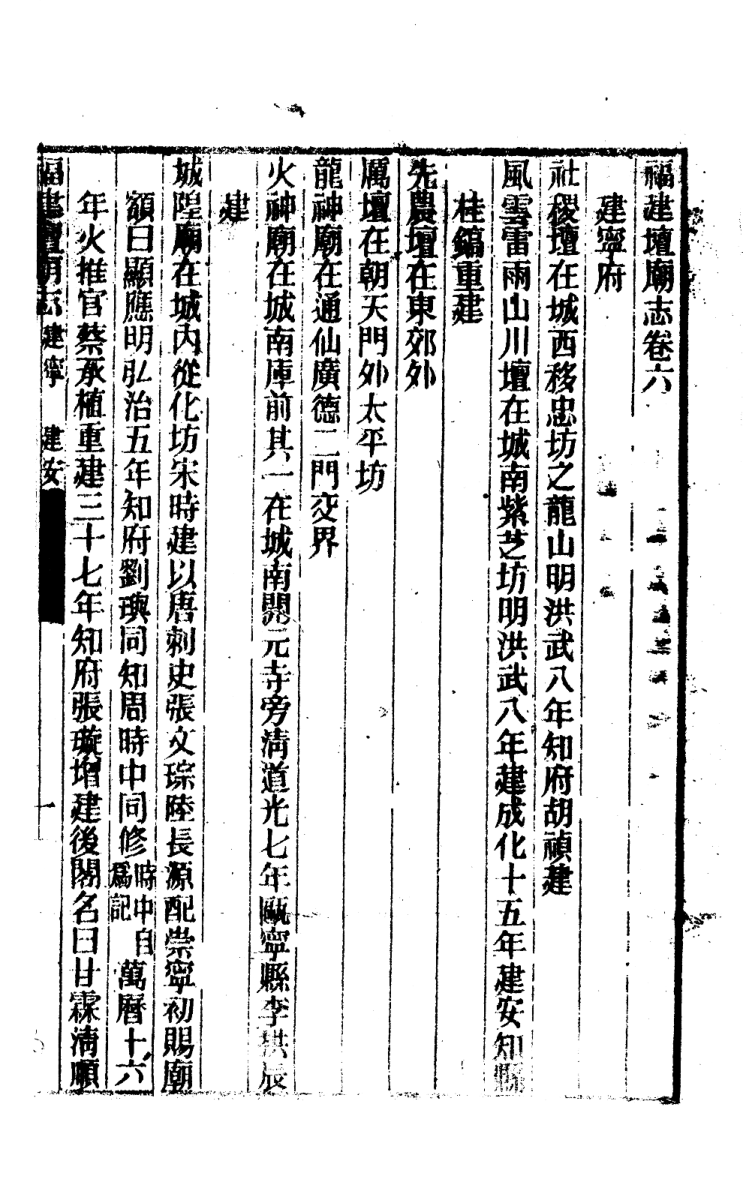 福建壇廟志卷六
建寧府
社稷壇在城西移忠坊之龍山明洪武八年知府胡禎建
風雲雷雨山川壇在城南紫芝坊明洪武八年建成化十五年建安知縣
桂鎬重建
先農壇在東郊外
厲壇在朝天門外太平坊
龍神廟在通仙廣德二門交界
火神廟在城南庫前其一在城南開元寺旁清道光七年甌寧縣李 辰
建
城隍廟在城內從化坊宋時建以唐刺史張文琮陸長源配崇寧初賜廟
額曰顯應明弘治五年知府劉璵同知周時中同修時中自爲記萬曆十六
年火推官蔡承植重建三十七年知府張璇增建後閣名曰甘霖清順
福建壇廟志 建寧 建安 一